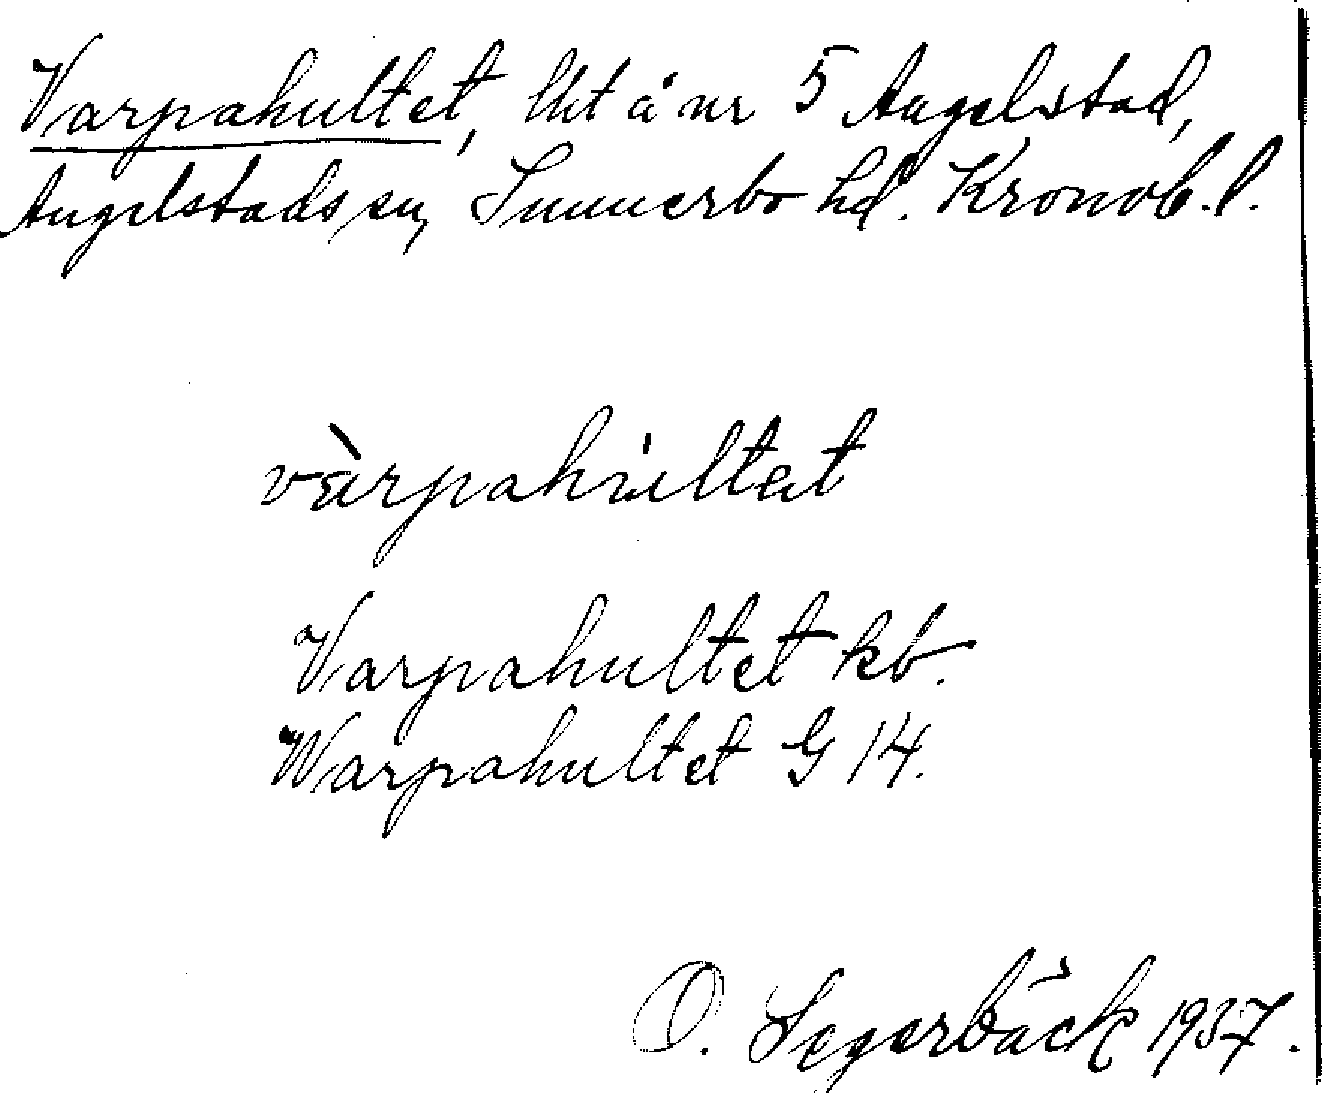 Varpahultet, lht å nr 5 Angelstad,
Angelstads sn, Sunnerbo hd. Kronob. l.
vàrpahúltat
Varpahultet kb.
Warpahultet G 14.
O. Segerbäck 1937.